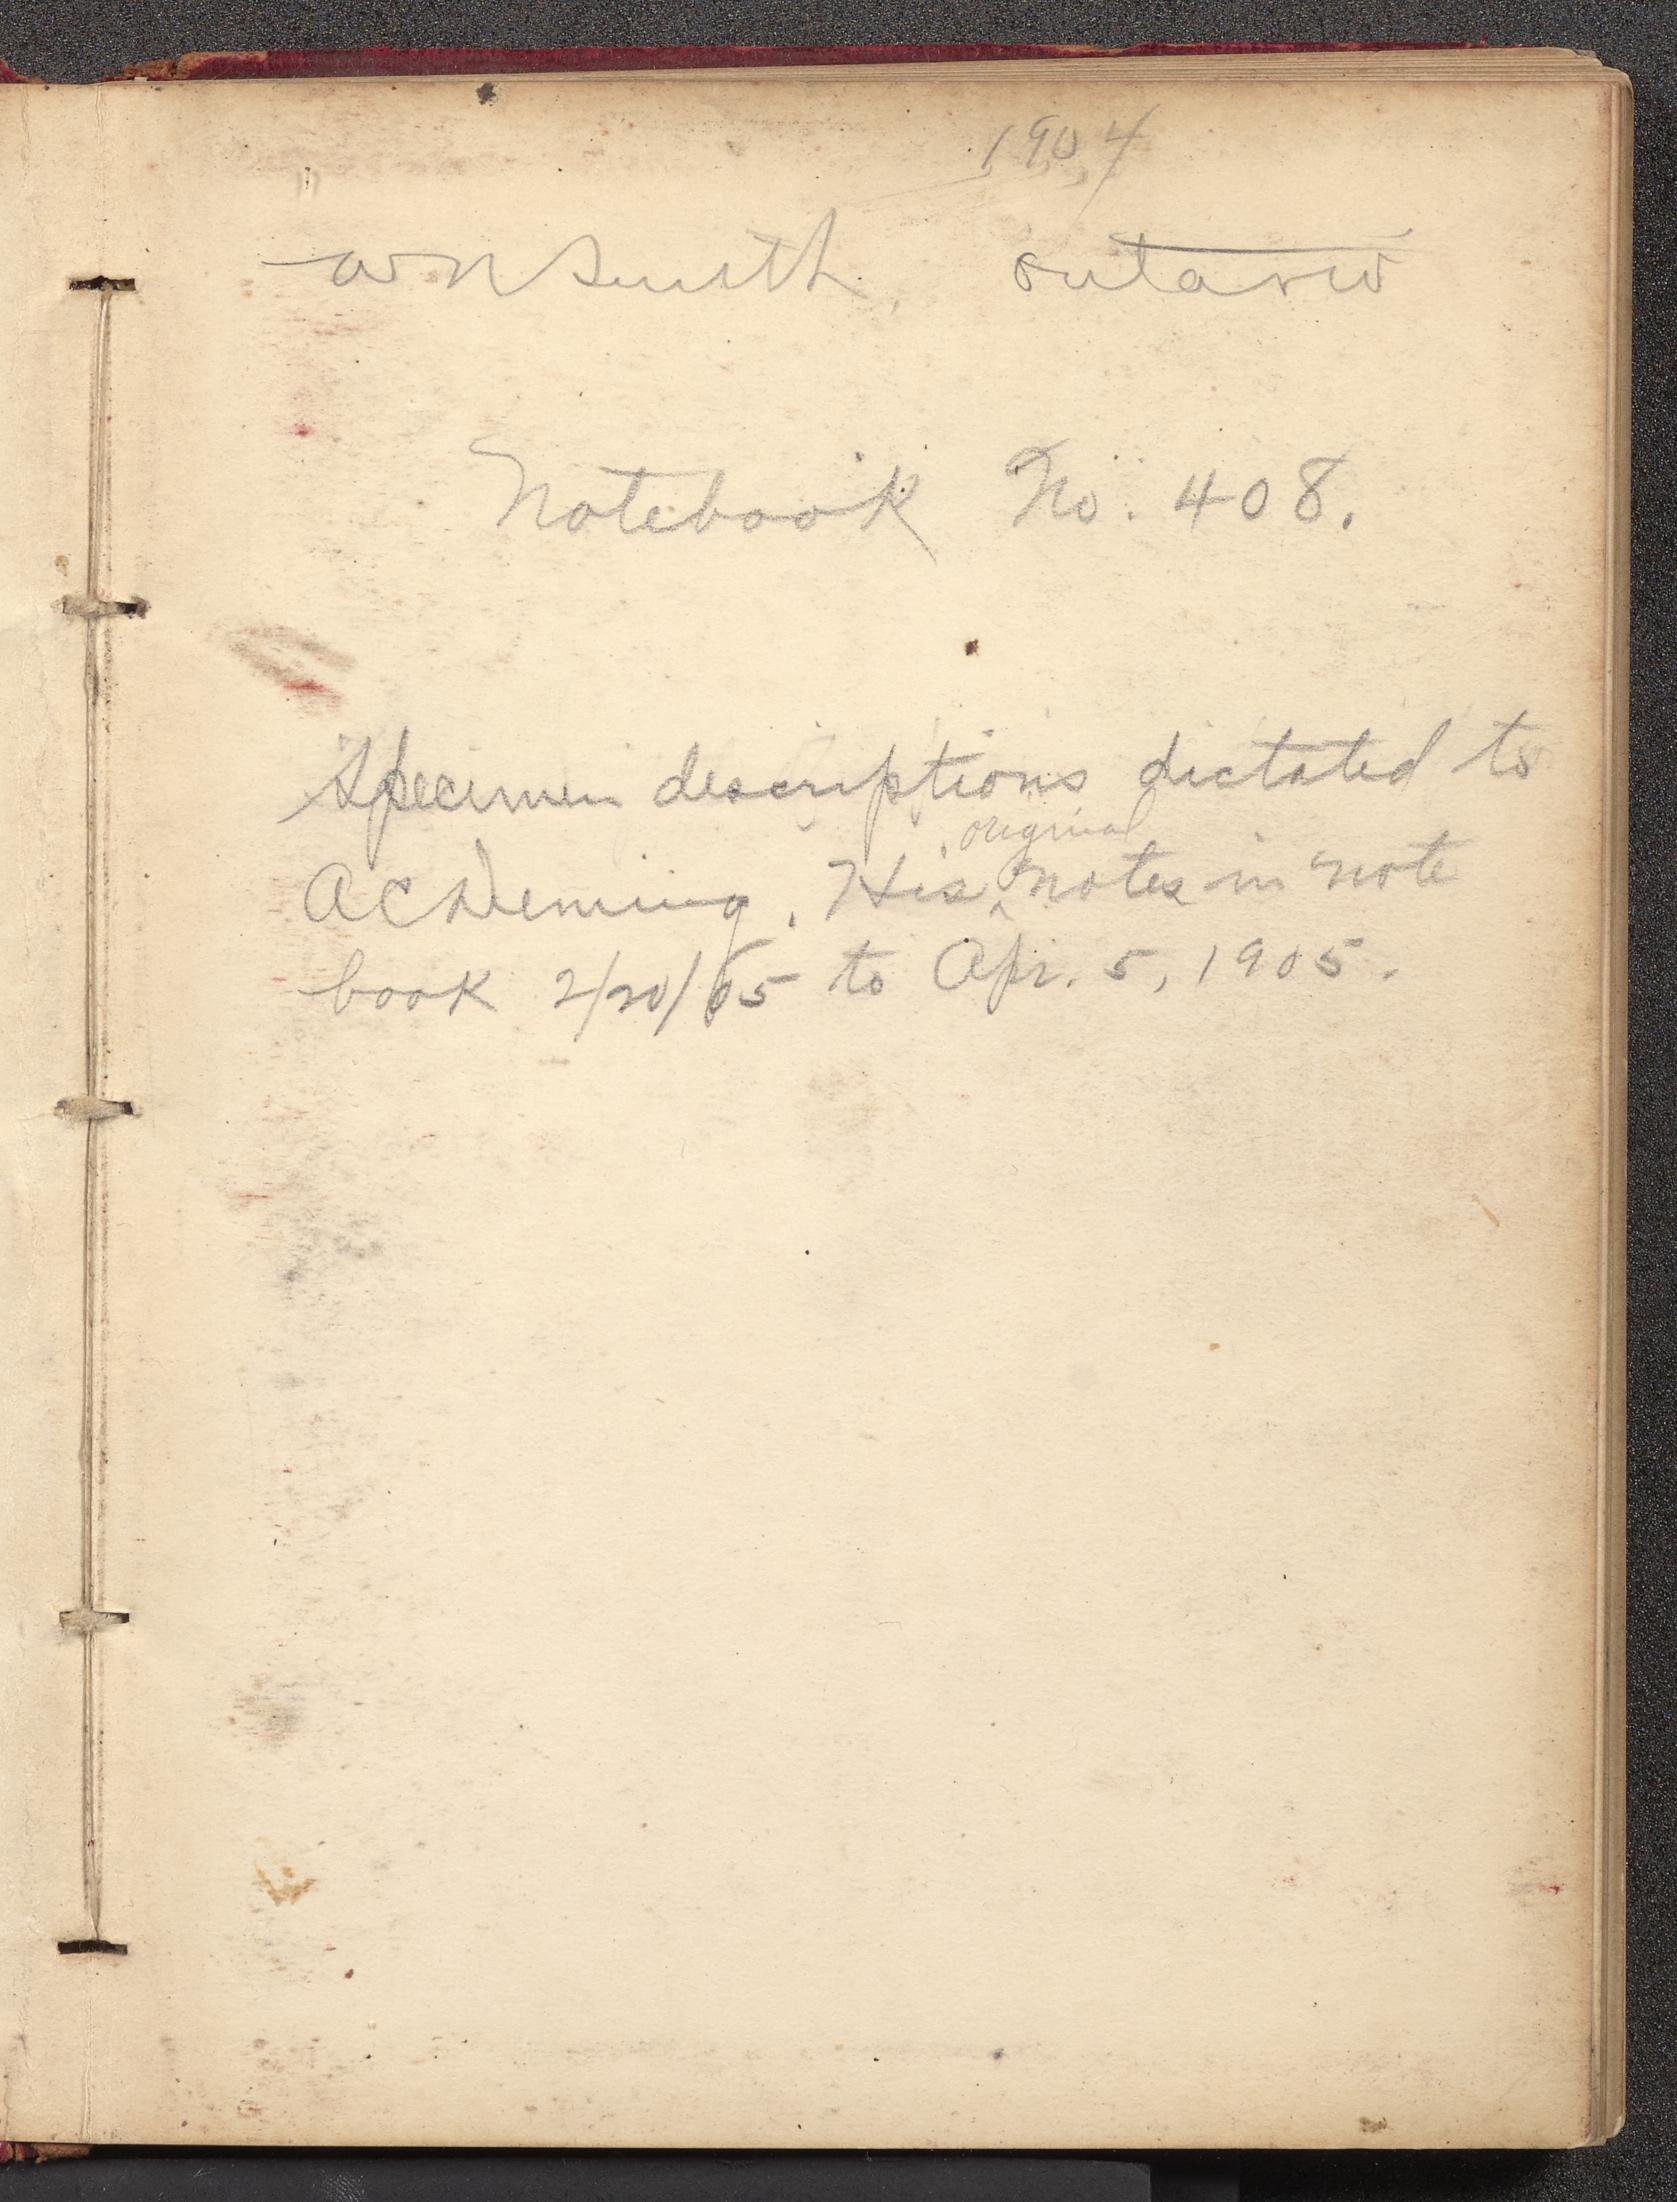 1904
W N Smith Ontario
Notebook No. 408.
Specimen descriptions dictated to
original
A C Deming. His ^ notes in note
book 2/20/05 to Apr. 5, 1905.